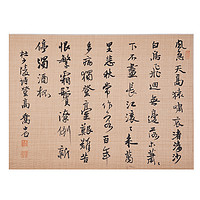 風急天高猿嘯哀渚清沙
白鳥飛迴無邊落木蕭
下不盡長江滾々來萬
里悲秋常作客百年
多病獨登臺艱難苦
恨繁霜鬢潦倒新
停濁酒杯
杜少陵詩登高